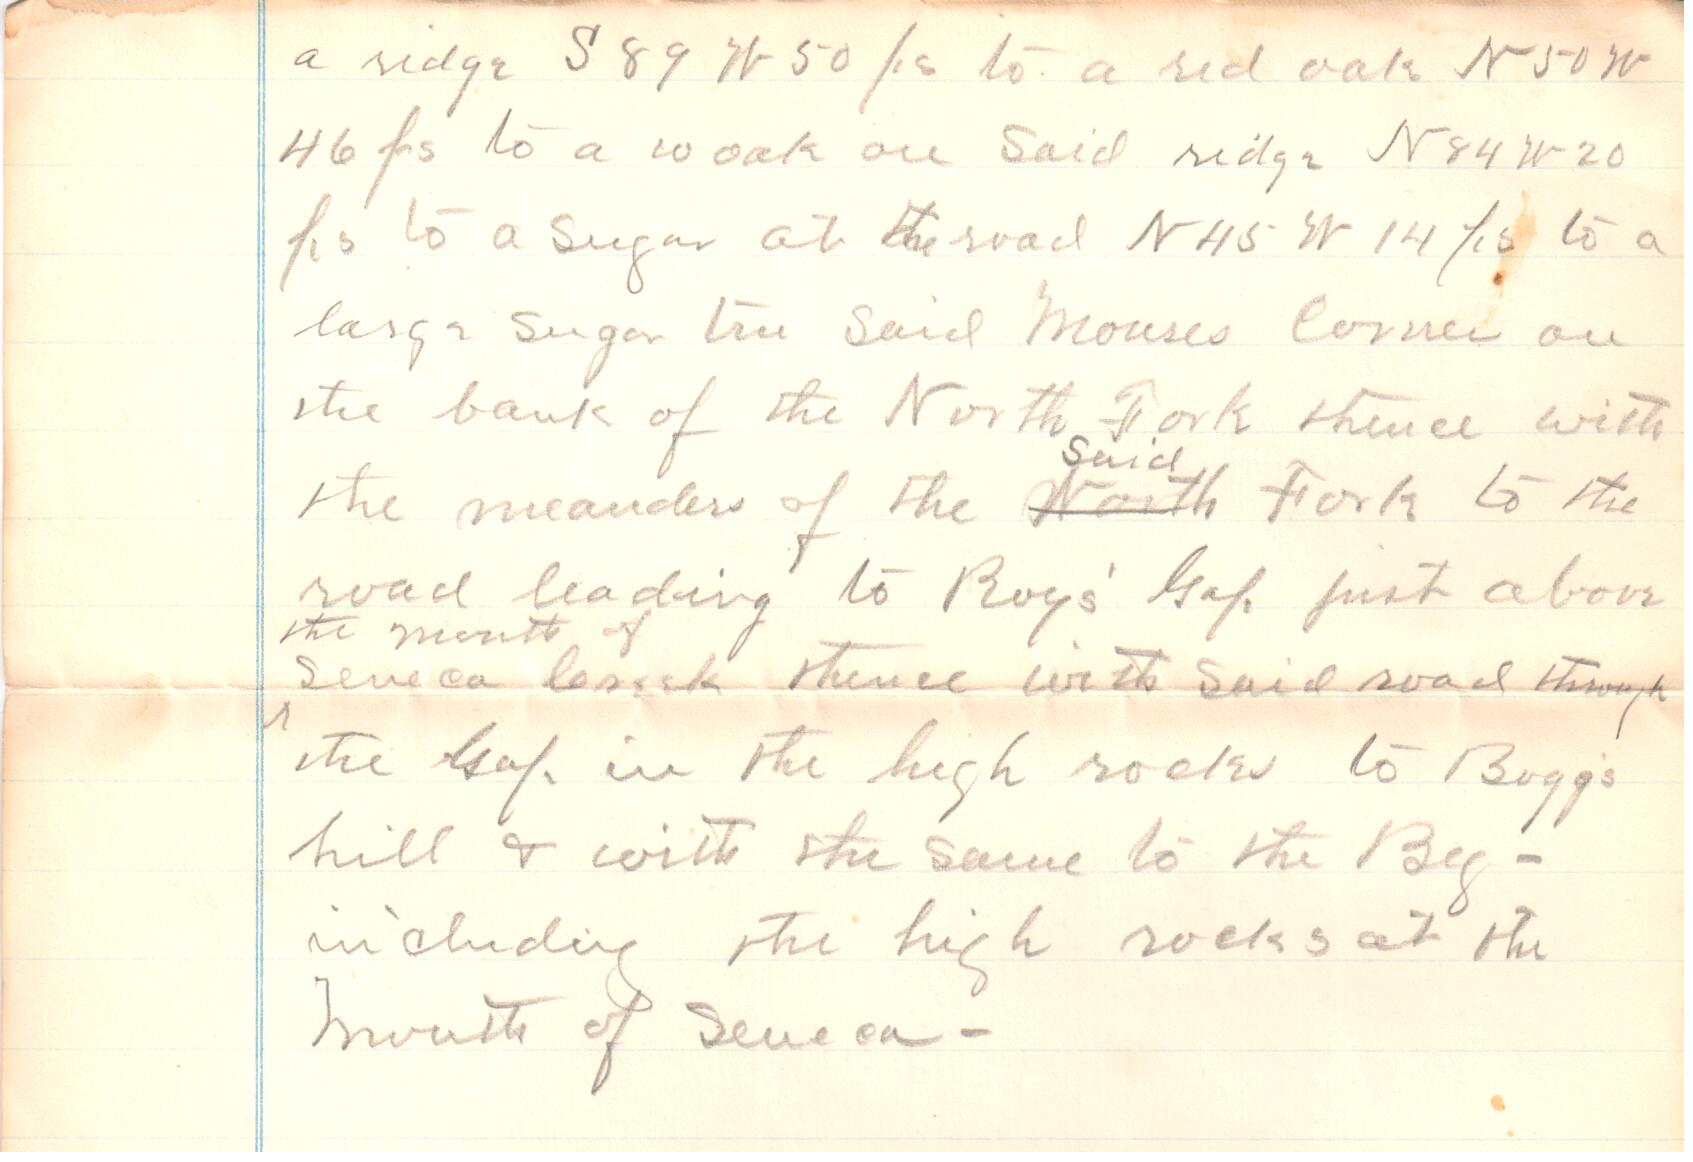 a ridge S 89 W 50 ps to a red oak N 50 W
46 ps to a w oak on Said ridge N 84 W 20
ps to a Sugar at the road N 45 W 14 ps to a
large Sugar tree Said Mouses Corner on
the bank of the North Fork thence with
Said
the meanders of the North Fork to the
road leading to Roy's Gap just above
the mouth of
Seneca Creek thence with Said road through
the Gap in the high rocks to Boggs
hill & with the Same to the Beg -
including the high rocks at the
Mouth of Seneca -